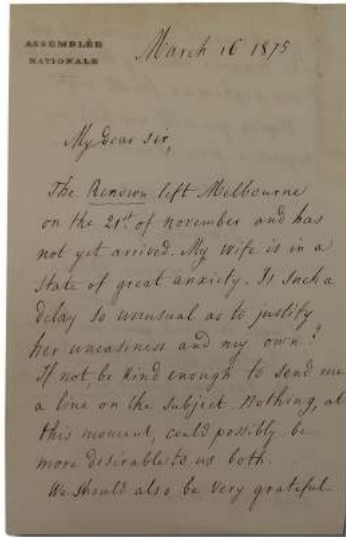 ASSEMBLÉE
NATIONALE
March 16 1875
My Dear Sir,
The Renown left Melbourne
on the 21st. of november and has
not yet arrived. My wife is in a
state of great anxiety. Is such a
delay so unusual as to justify
her uneasiness and my own?
If not, be kind enough to send me
a line on the subject. Nothing, at
this moment, could possibly be
more desirable to us both.
We should also be very grateful